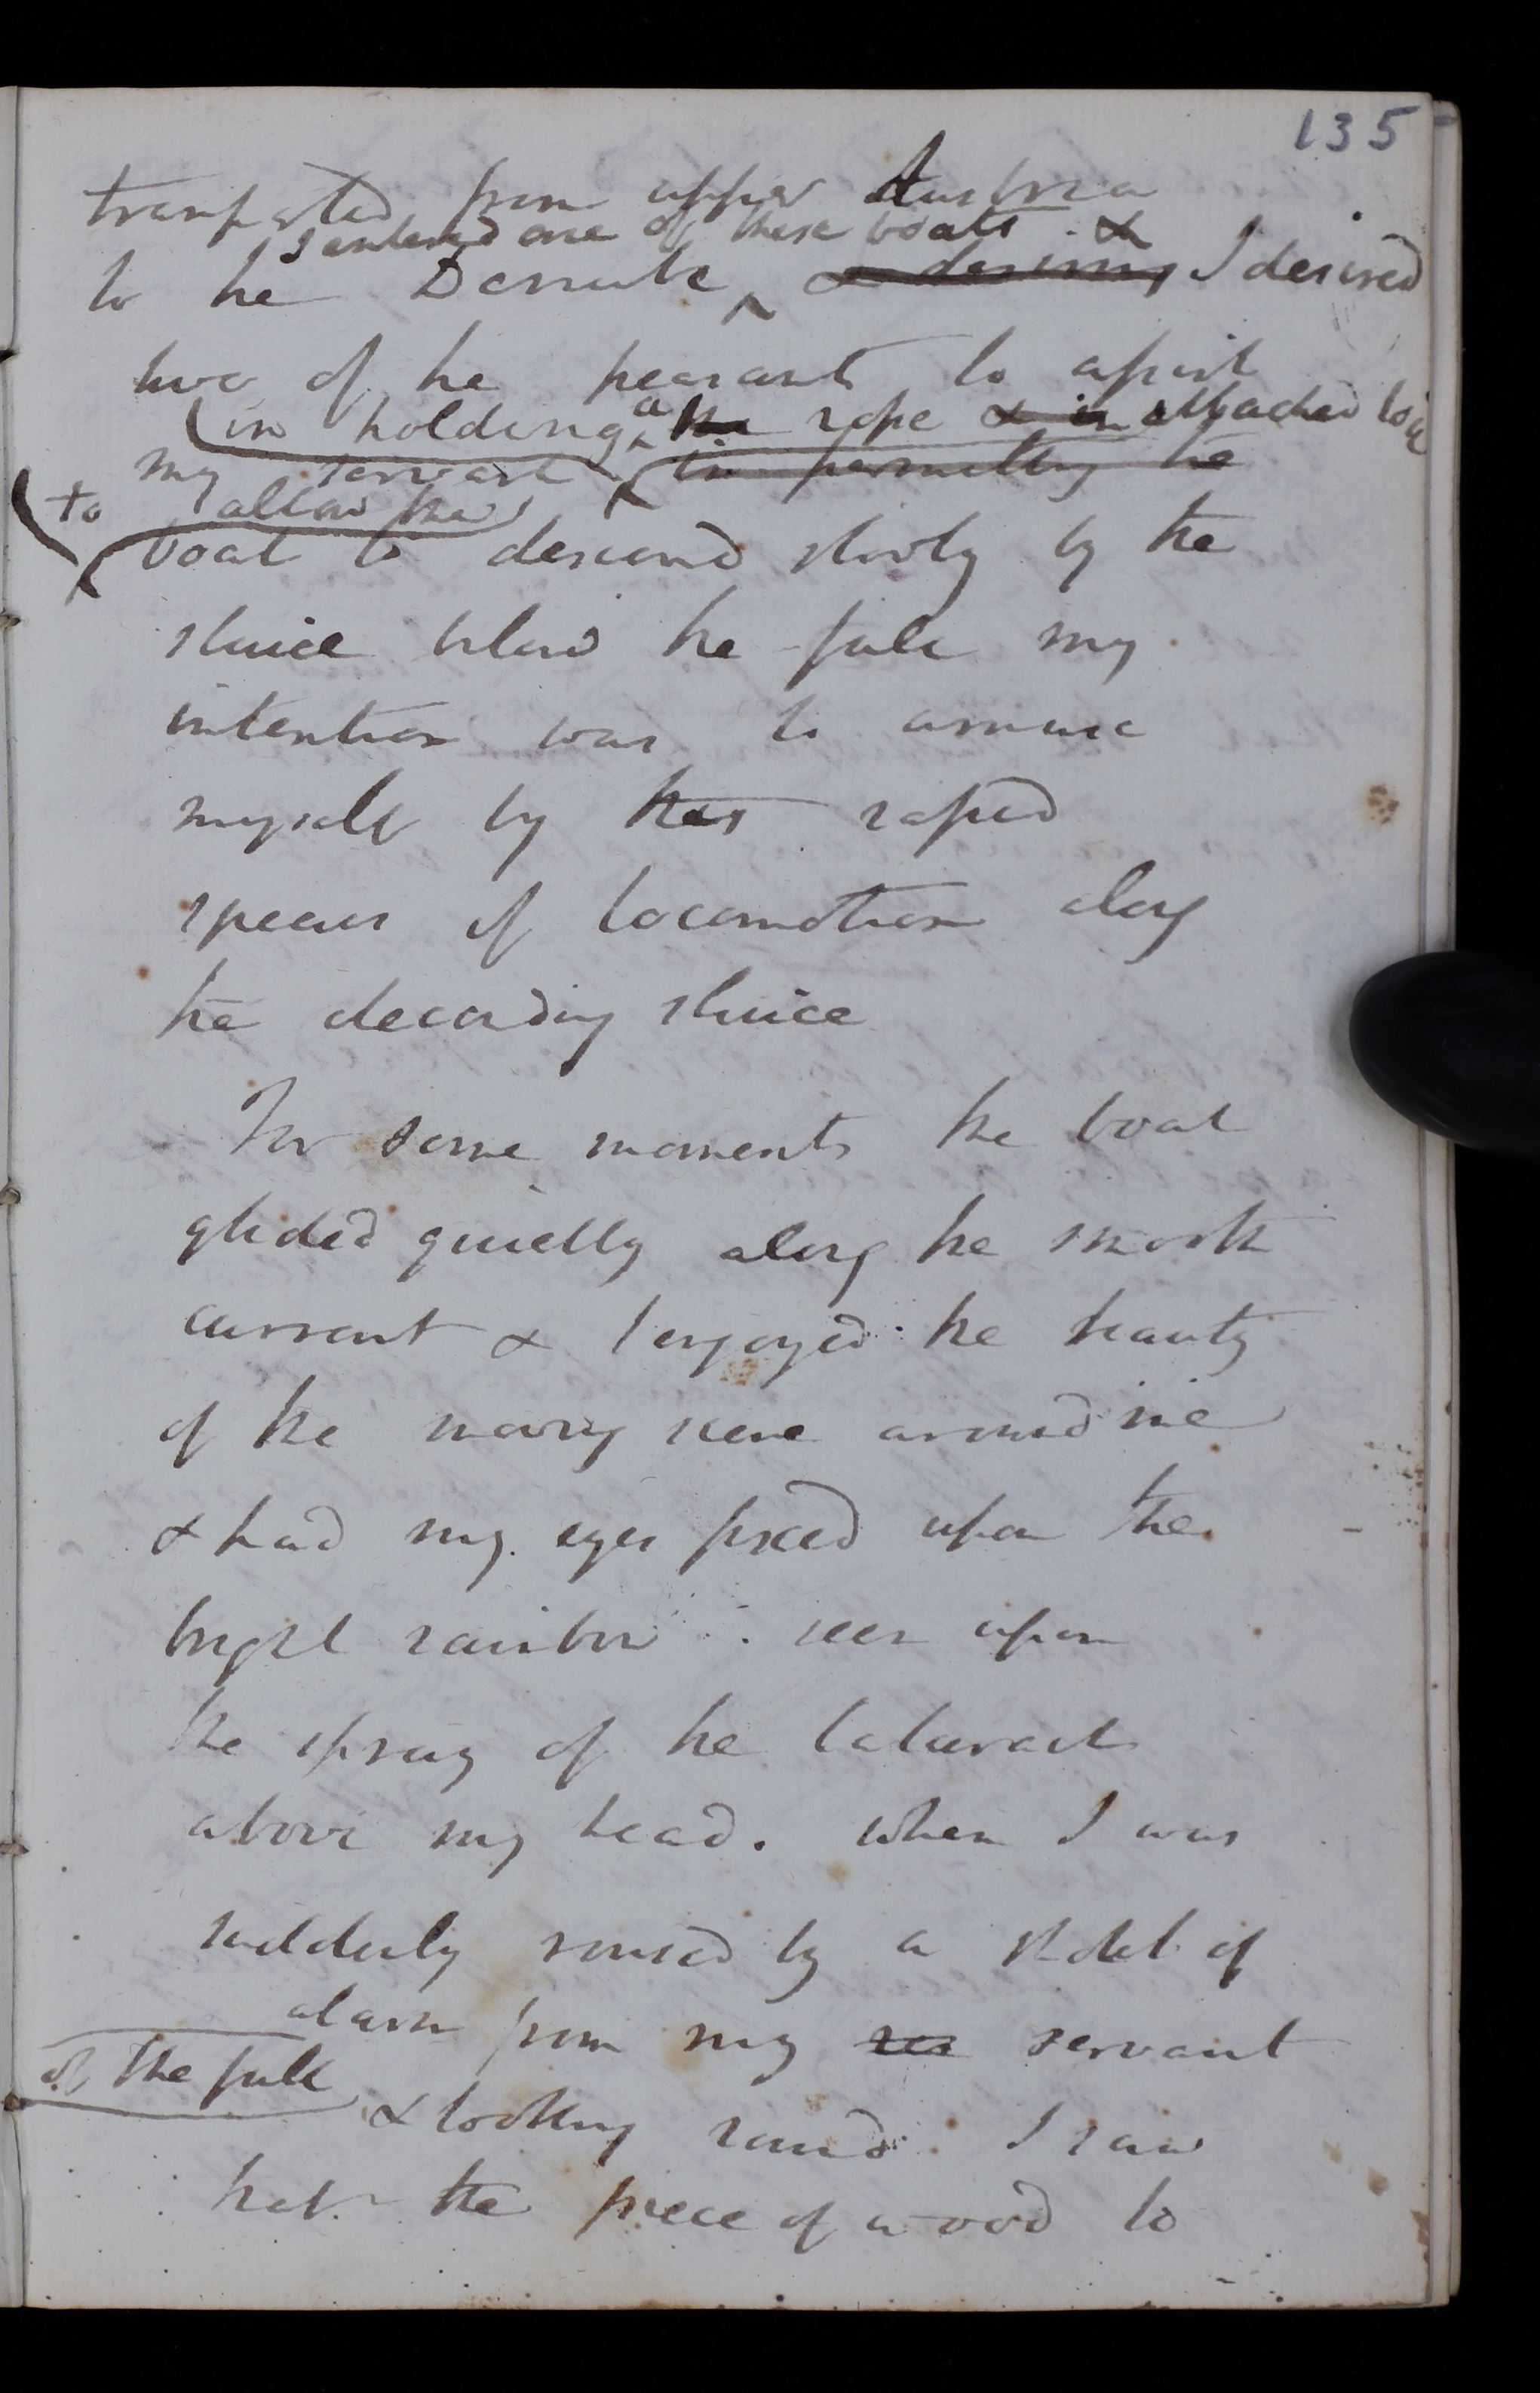 135
transported from upper Austria
I entered one of these boats &
to the Danube & desiring I desired
two of the peasants to assist
in holding a the rope & in attached to it
my servant in permitting the
to allow the
boat to descend slowly by the
sluice below the fall my
intention was to amuse
myself by this rapid
species of locomotion along
the decending sluice
For some moments the boat
glided quietly along the smooth
current & I enjoyed the beauty
of the moving scene around me
& had my eyes fixed upon the
bright rainbow seen upon
the spray of the Cataract
above my head. when I was
suddenly roused by a shout of
alarm from my ser servant
of the fall
& looking round I saw
that the piece of wood to